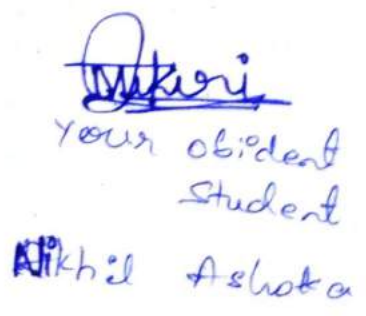 Your obident
Student
Nikhil Ashoka